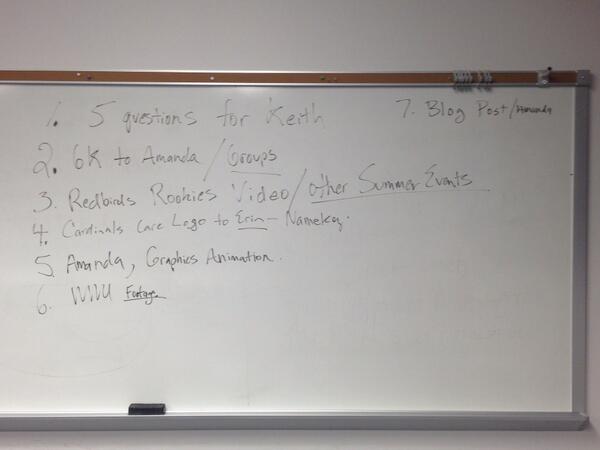 1. 5 questions for Keith
2. 6K to Amanda / Groups
3. Redbirds Rookies Video / other Summer Events
4. Cardinals Care Logo to Erin - Namekey.
5. Amanda, Graphics Animation.
6. WWU Footage
7. Blog Post / Amanda